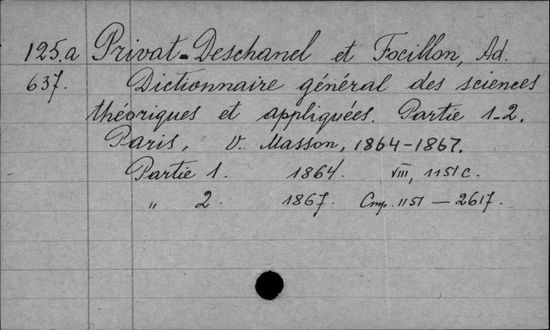 125.a Privat-Deschanel et Focillon, Ad.
637. Dictionnaire général des sciences
théoriques et appliquées. Partie 1-2.
Paris, V. Masson, 1864-1867.
Partie 1. 1864. VIII, 1151 c.
„ 2. 1867. Стр. 1151 — 2617.